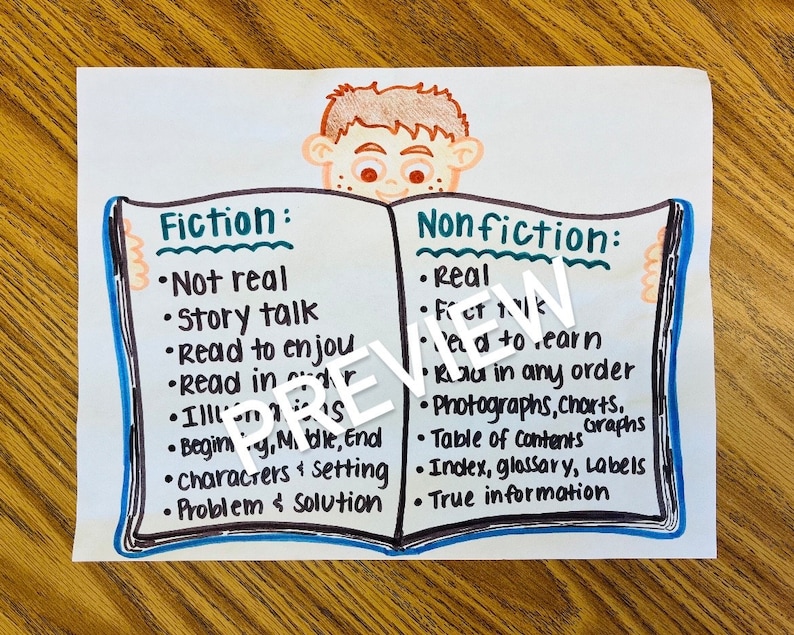 Fiction:
• Not real
• Story talk
• Read to enjoy
• Read in order
• Illustrations
• Beginning, Middle, End
• Characters & Setting
• Problem & Solution
Nonfiction:
• Real
• Fact talk
• Read to learn
• Read in any order
• Photographs, Charts,
Graphs
• Table of Contents
• Index, glossary, Labels
• True information
PREVIEW